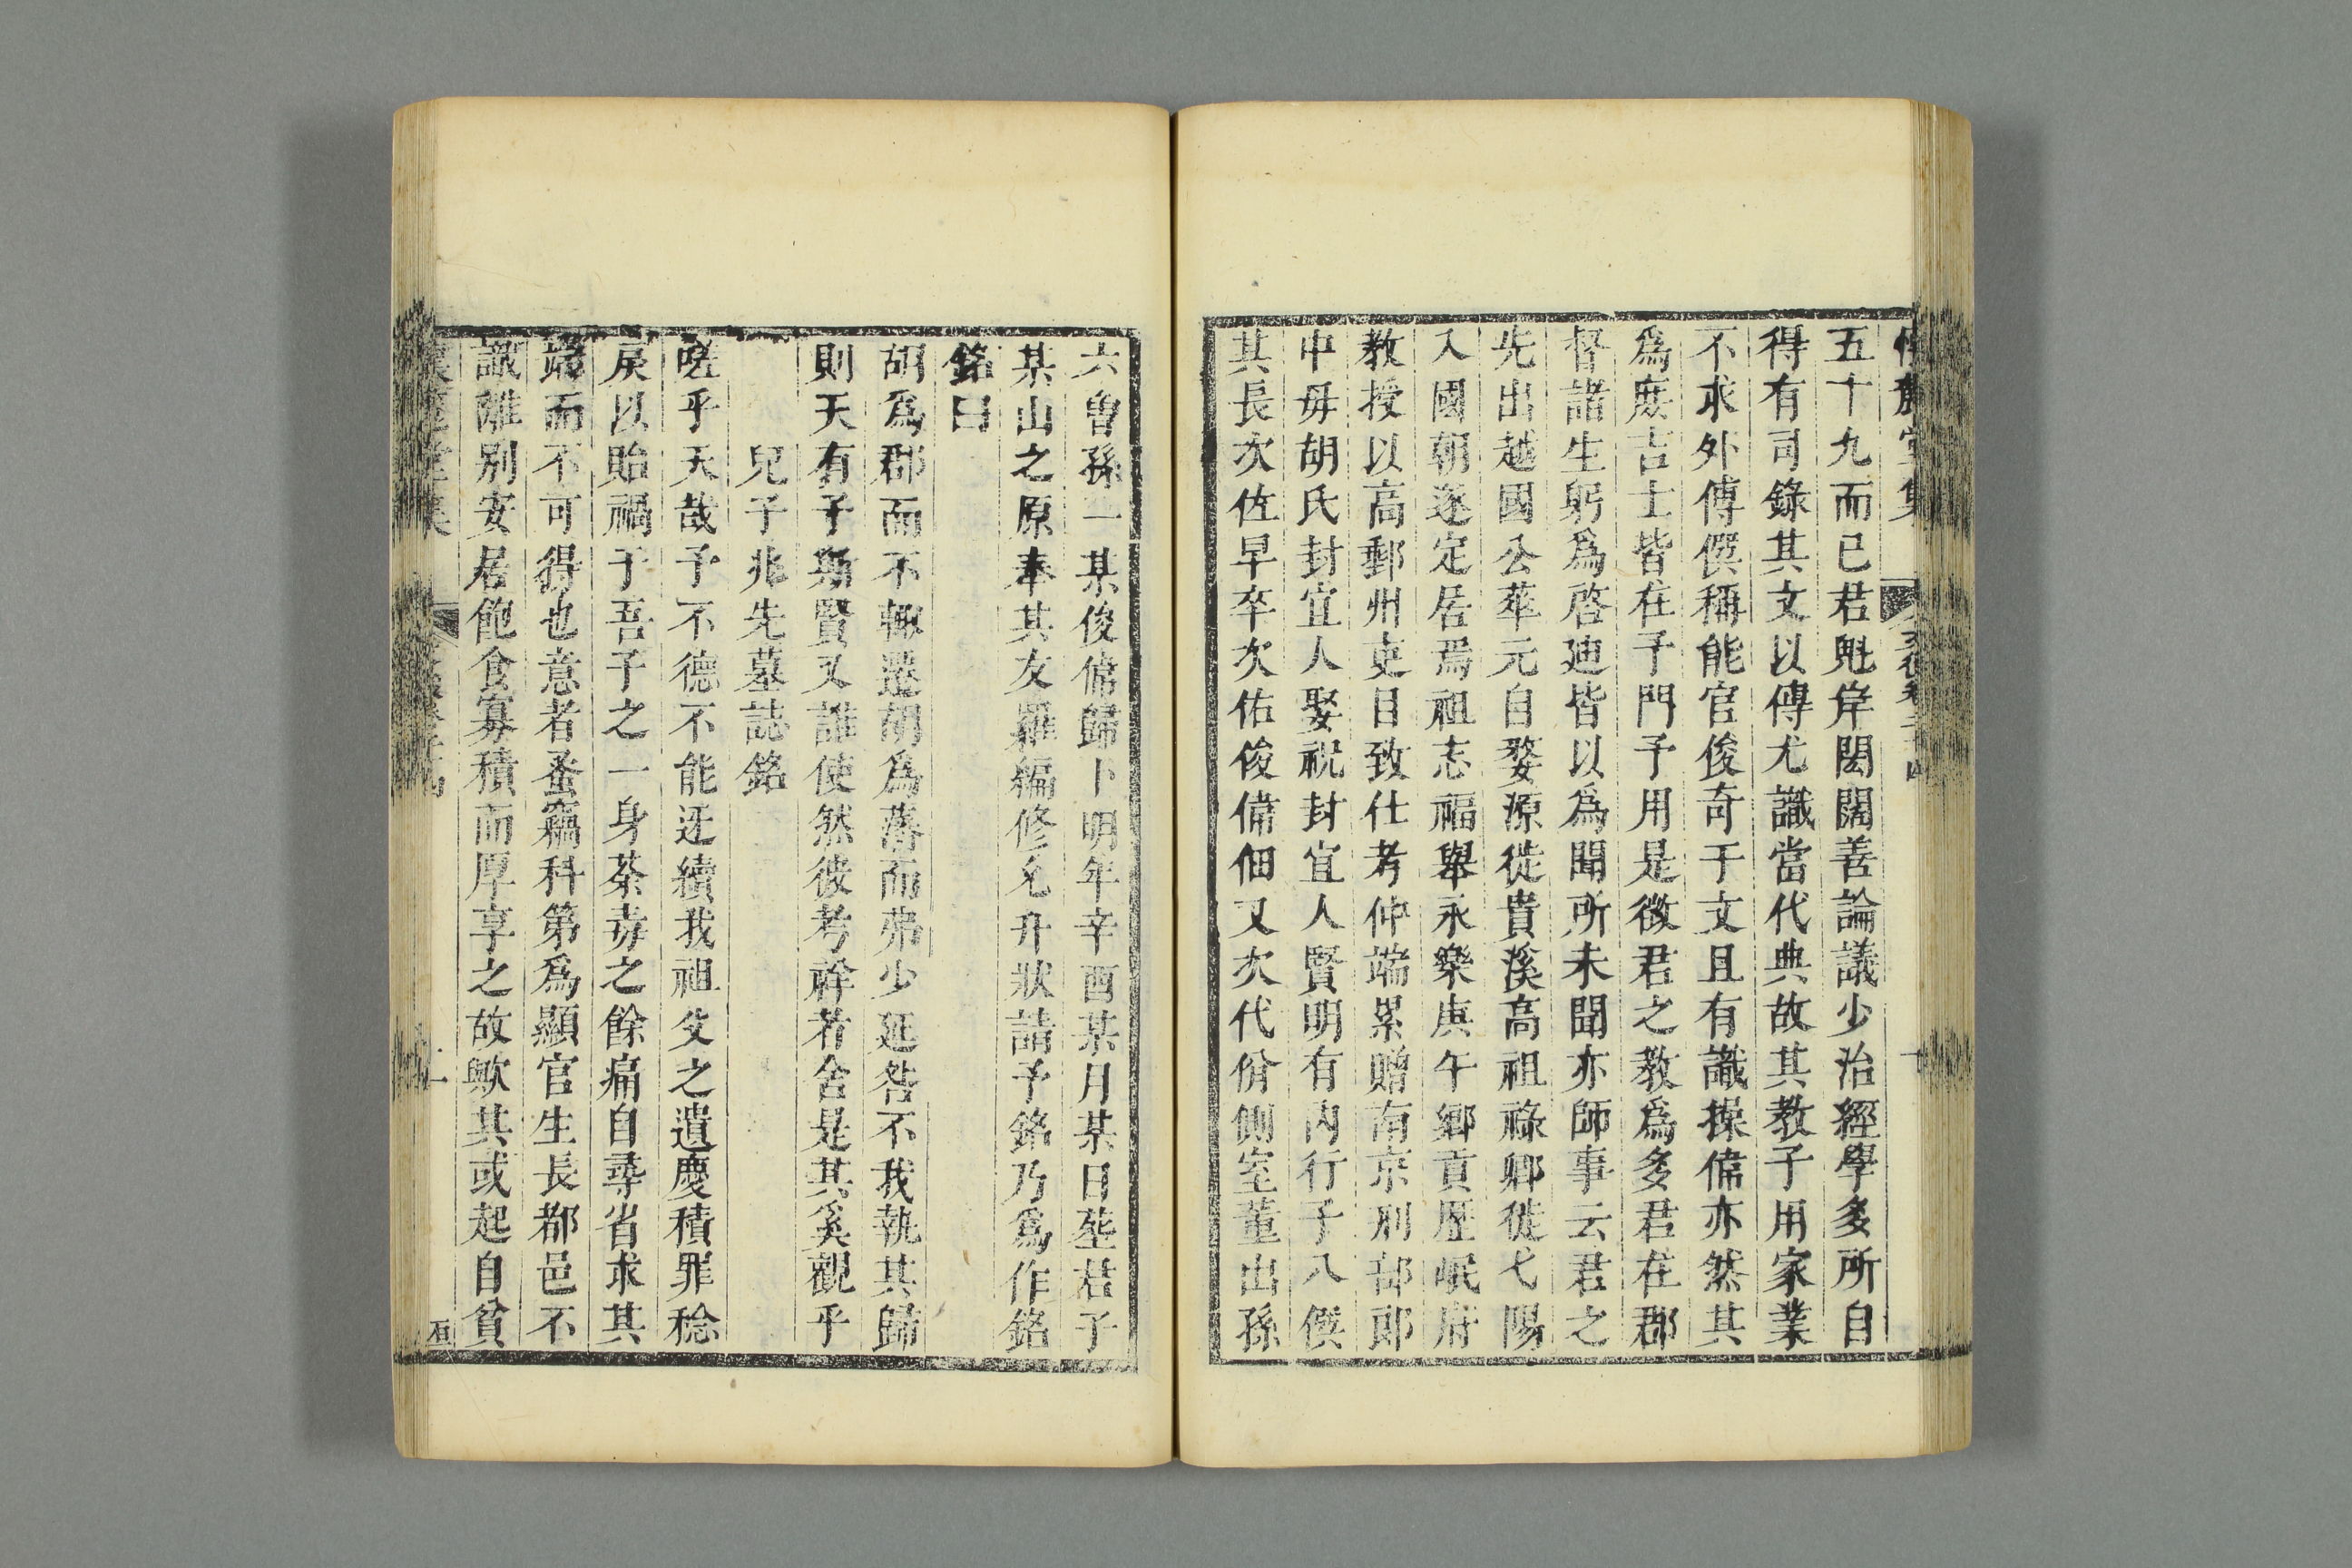 五十九而已君魁岸閎闊善論議少治經學多所自
得有司錄其文以傳尤識當代典故其教子用家業
不求外傅僎稱能官俊奇于文且有識操偹亦然其
爲庶吉士皆在予門予用是徵君之教爲多君在郡
督諸生躬爲啓廸皆以爲聞所未聞亦師事云君之
先出越國公華元自婺源徙貴溪高祖祿卿徙弋陽
入國朝遂定居焉祖志福舉永樂庚午鄉貢歷岷府
教授以高郵州吏目致仕考仲端累贈南京刑部郎
中毋胡氏封宜人娶祝封宜人賢明有内行子八僎
其長次佐早卒次佑俊偹佃又次代佾側室董出孫
六曾孫一某俊偹歸卜明年辛酉某月某日塟君于
某山之原奉其友羅編修允升狀請予銘乃爲作銘
銘曰
胡爲郡而不輙遷胡爲蕃而弗少延咎不我執其歸
則天有子斯賢又誰使然彼考祥者舍是其奚觀乎
兒子兆先墓誌銘
嗟乎天哉予不德不能迓續我祖父之遺慶積罪稔
戾以貽禍于吾子之一身荼毒之餘痛自尋省求其
端而不可得也意者蚤竊科第爲顯官生長都邑不
識離别安居飽食寡積而厚享之故歟其或起自貧
石